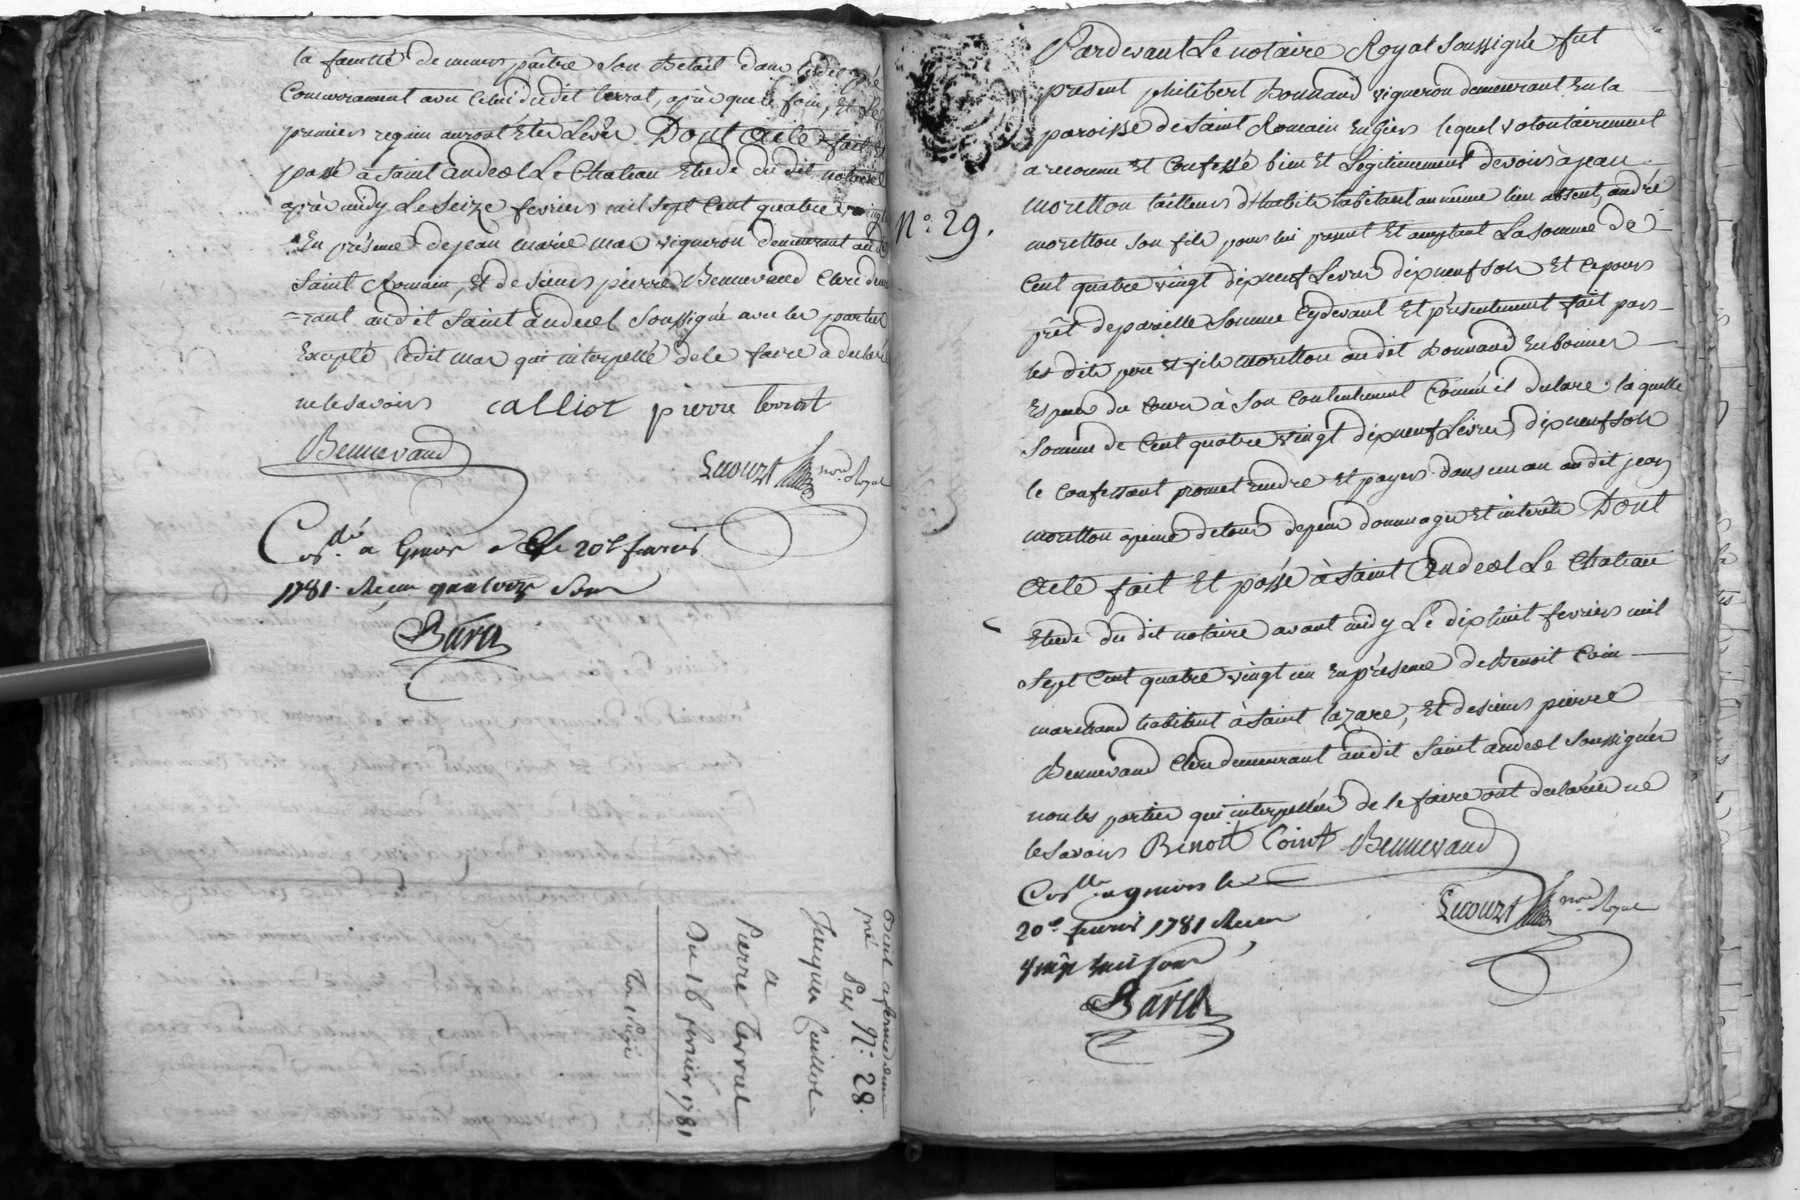 la faculté de mener paître son Betail dans ledit pré
Concurremment avec Celui dudit terrat, après que le foin, Et le
premier regain auront été Levés. Dont Acte fait et
passé à Saint andeol Le Chateau Etude du dit notaire
après midy Le seize fevrier mil sept Cent quatre vingt
En présence de jean marie mas vigneron demeurant audit
Saint Romain, Et de sieur pierre Bennevand Clerc demeu
-rant audit Saint andeol Soussigné avec les parties
Excepté ledit mas qui interpellé de le faire a déclaré
ne le savoir calliot pierre terrat
Bennevand
Lecourt nore. Royal
Conllé. a Givors le 20e. fevrier
1781. Recu quatorze Sous
Barit
pré N°. 28.
Jacques Caillot
a
Pierre Terrat
Du 16 fevrier 1781
Pardevant Le notaire Royal soussigné fut
present philibert Bonnand vigneron demeurant En la
paroisse de Saint Romain En Giers lequel volontairement
a reconnu Et Confessé bien Et Légitimement devoir à jean
N°. 29.
moretton tailleur d'habits habitant au même lieu absent, andré
moretton son fils pour lui present Et acceptant La somme de
Cent quatre vingt dix neuf Livres dix neuf sols Et Ce pour
prêt de pareille somme Cy devant Et présentement fait par
les dits pere Et fils moretton audit Bonnand En bonnes
Especes du Cours à Son Contentement Comme il declare. la quelle
Somme de Cent quatre vingt dix neuf Livres, dix neuf sols
le Confessant promet rendre Et payer dans un an audit jean
moretton à peine de tous depens dommages Et interêts Dont
Acte fait Et passé à Saint Andeol Le Chateau
Etude du dit notaire avant midy Le dix huit fevrier mil
Sept Cent quatre vingt un En présence de Benoit Coin
marchand habitant à Saint lazare, Et de sieur pierre
Bennevand Clerc demeurant audit Saint andeol Soussignés
non les parties qui interpellées de le faire ont déclarées ne
le savoir Benoit Coint Bennevand
Conllé a givors le
20e. fevrier 1781 Recu
Lecourt nore. Royal
Vingt huit sous
Barit